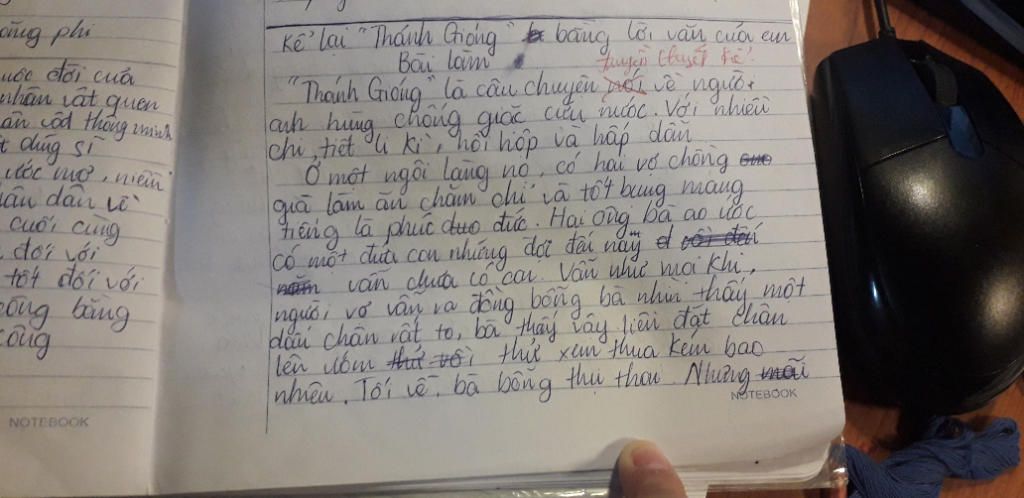 ước đời của
nhân vật quen
thông minh
dũng sĩ
ước mơ, niềm
dân về
cuối cùng
đối với
tốt đối với
công bằng
công
NOTEBOOK
Kể lại "Thánh Gióng" bằng lời văn của em
Bài làm
truyền thuyết kể
"Thánh Gióng" là câu chuyện nói về người
anh hùng chống giặc cứu nước. Với nhiều
chi tiết li kì, hồi hộp và hấp dẫn
Ở một ngôi làng nọ, có hai vợ chồng
già làm ăn chăm chỉ và tốt bụng mang
tiếng là phúc đức. Hai ông bà ao ước
có một đứa con nhưng đợi đến nay
vẫn chưa có con. Vẫn như mọi khi,
người vợ vẫn ra đồng bỗng bà nhìn thấy một
dấu chân rất to, bà thấy vậy liền đặt chân
lên ướm thử xem thua kém bao
nhiêu. Tối về, bà bỗng thụ thai. Nhưng
NOTEBOOK